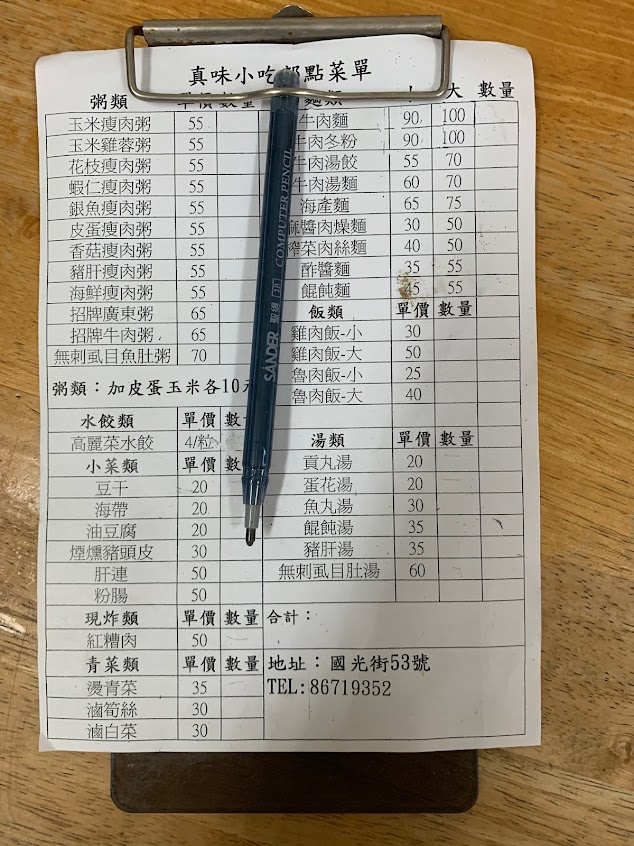 真味小吃部點菜單
粥類 單價 數量
玉米瘦肉粥 55
玉米雞蓉粥 55
花枝瘦肉粥 55
蝦仁瘦肉粥 55
銀魚瘦肉粥 55
皮蛋瘦肉粥 55
香菇瘦肉粥 55
豬肝瘦肉粥 55
海鮮瘦肉粥 55
招牌廣東粥 65
招牌牛肉粥 65
無刺虱目魚肚粥 70
粥類：加皮蛋玉米各10元
水餃類 單價 數量
高麗菜水餃 4/粒
小菜類 單價 數量
豆干 20
海帶 20
油豆腐 20
煙燻豬頭皮 30
肝連 50
粉腸 50
現炸類 單價 數量
紅糟肉 50
青菜類 單價 數量
燙青菜 35
滷筍絲 30
滷白菜 30
麵類 大 數量
牛肉麵 90 100
牛肉冬粉 90 100
牛肉湯餃 55 70
牛肉湯麵 60 70
海產麵 65 75
麻醬肉燥麵 30 50
榨菜肉絲麵 40 50
酢醬麵 35 55
餛飩麵 45 55
飯類 單價 數量
雞肉飯-小 30
雞肉飯-大 50
魯肉飯-小 25
魯肉飯-大 40
湯類 單價 數量
貢丸湯 20
蛋花湯 20
魚丸湯 30
餛飩湯 35
豬肝湯 35
無刺虱目肚湯 60
合計：
地址：國光街53號
TEL:86719352
SANDER 聖得 2B COMPUTER PENCIL